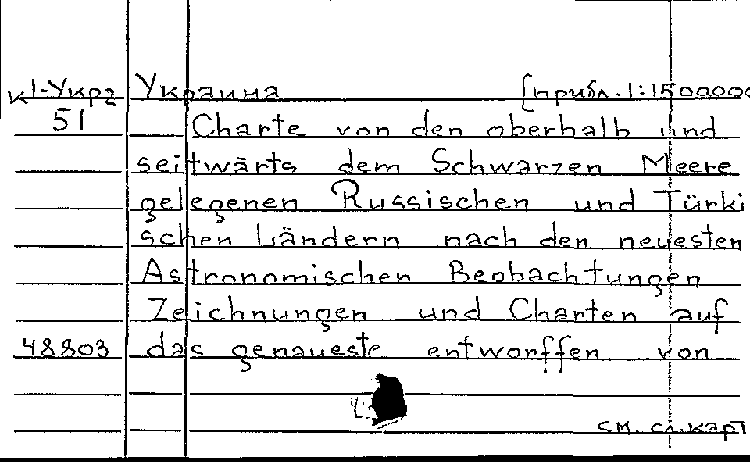 К1-Укр2 Украина [прибл. 1:1500000
51 Charte von den oberhalb und
seitwärts dem Schwarzen Meere
gelegenen Russischen und Türki
schen Ländern nach den neuesten
Astronomischen Beobachtungen
Zeichnungen und Charten auf
48803 das genaueste entworffen von
см. сл. карт